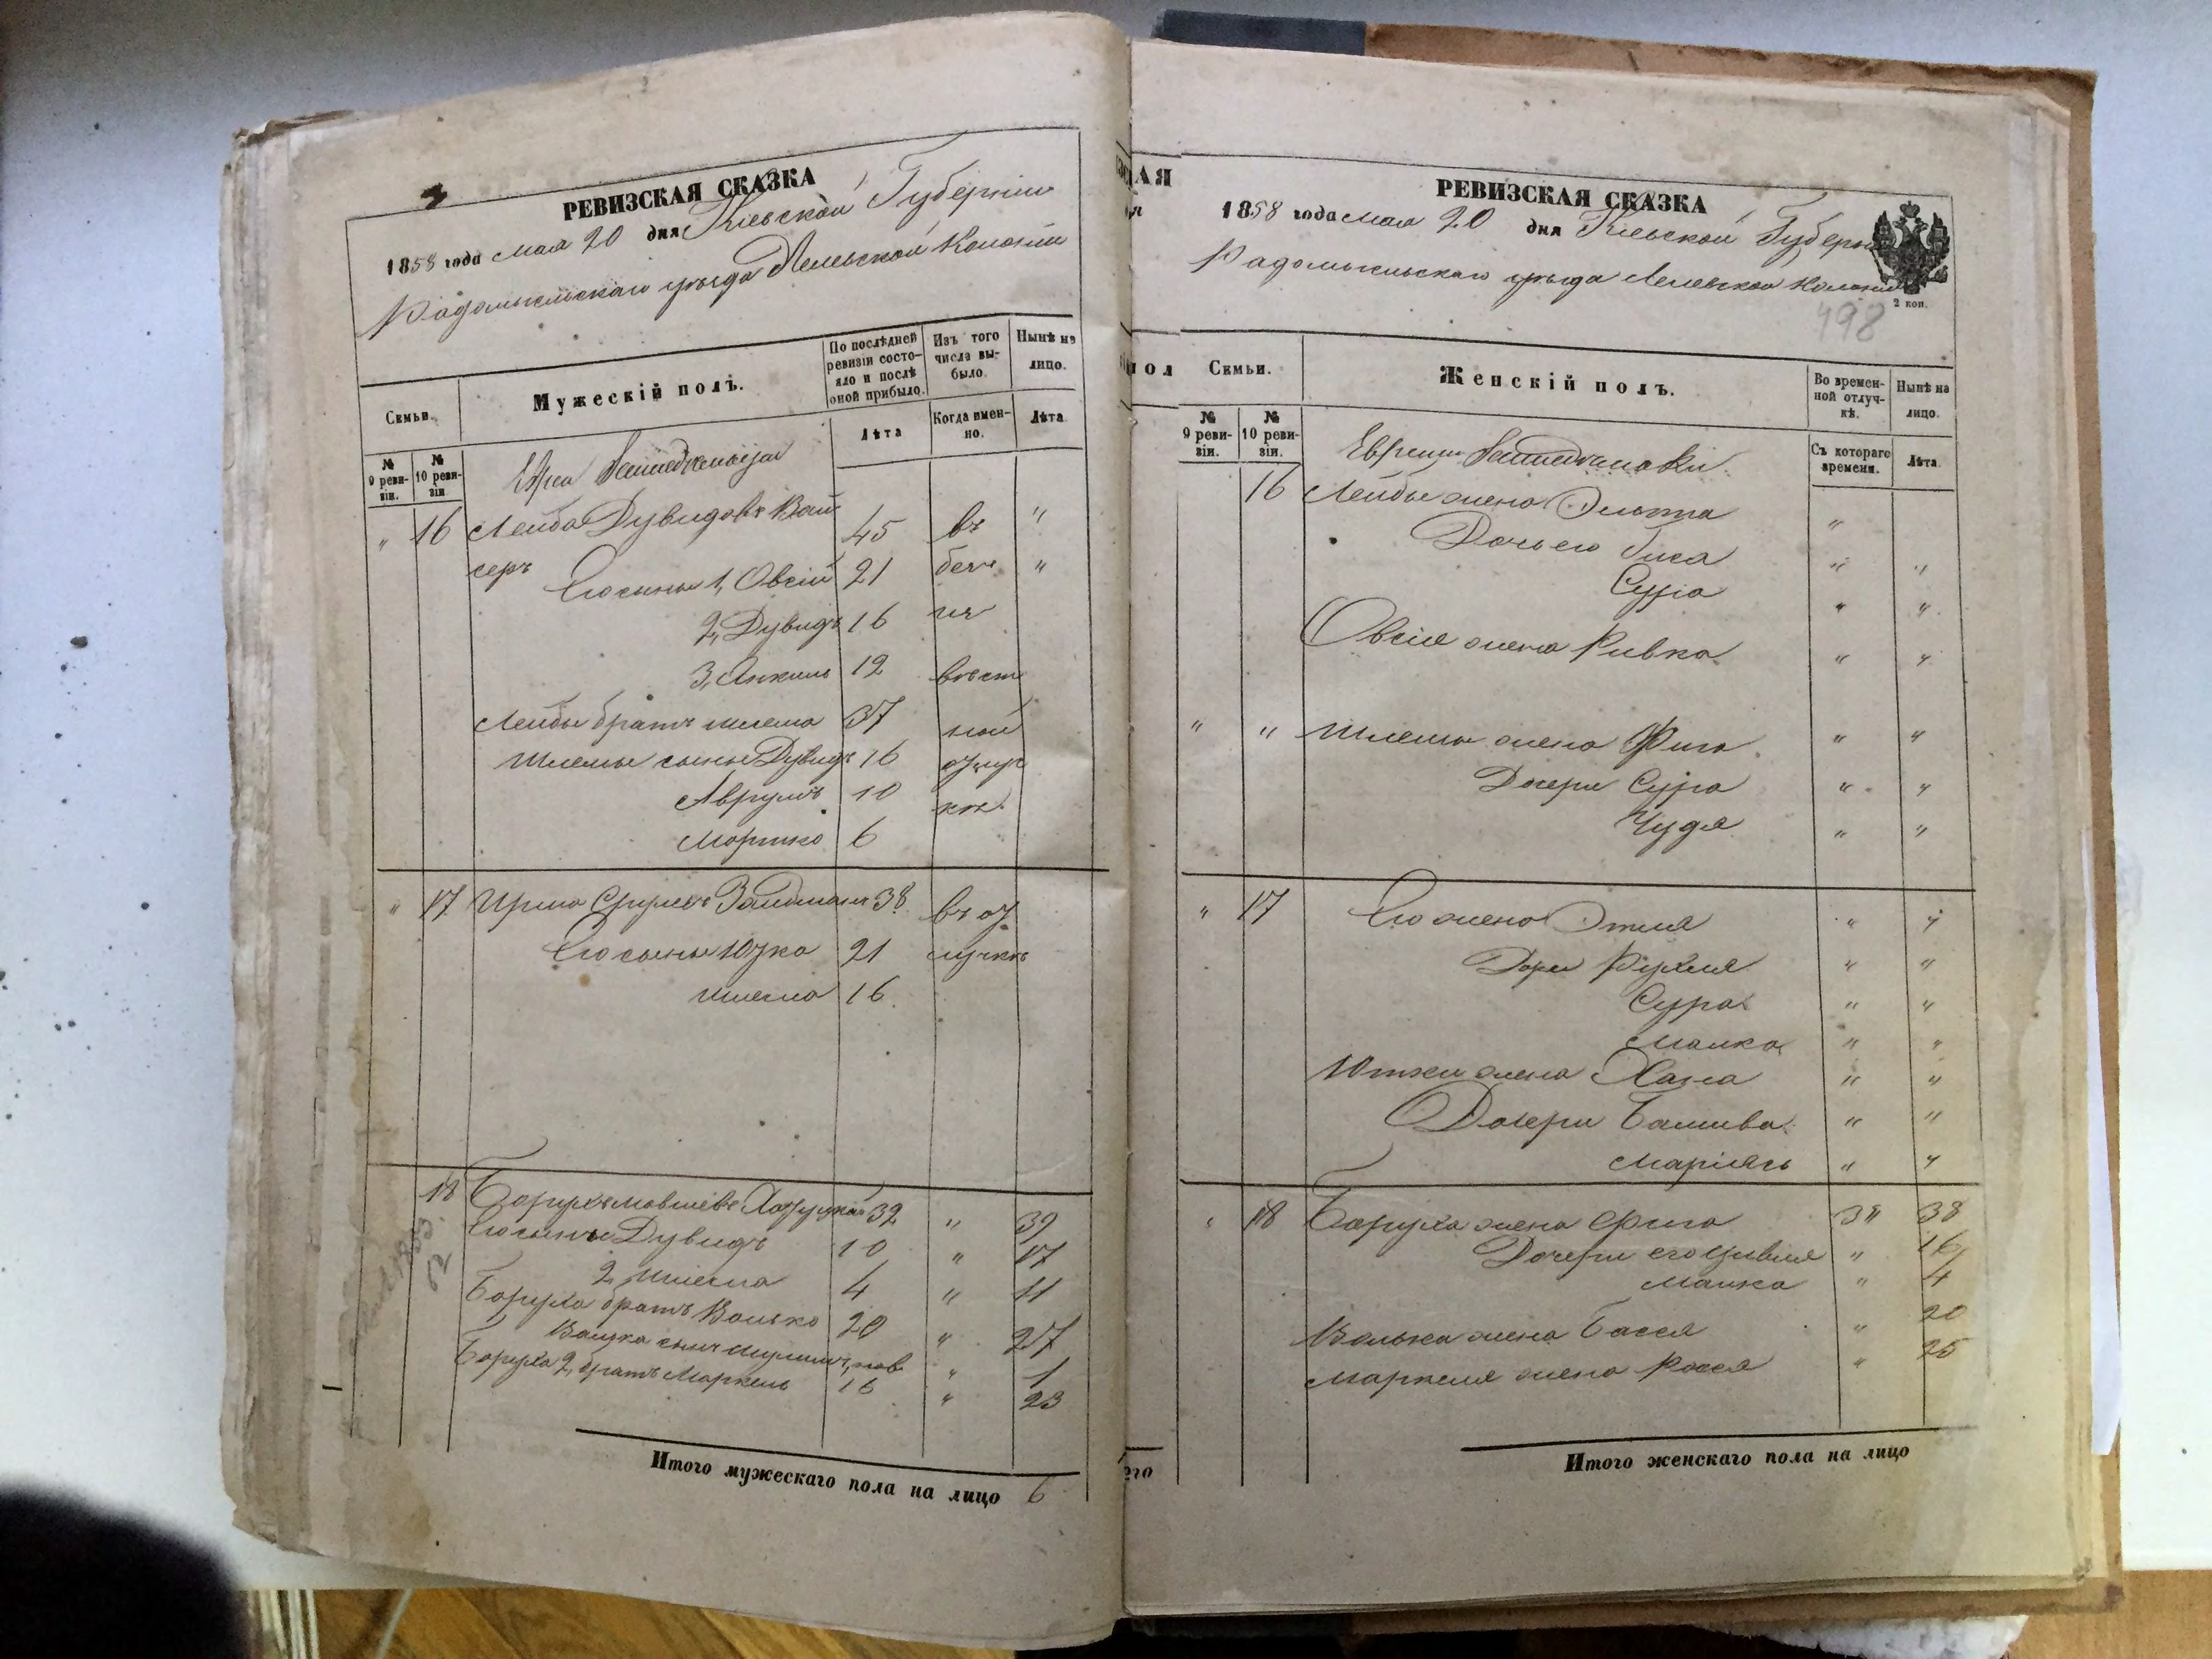 РЕВИЗСКАЯ СКАЗКА
1858 года мая 20 дня Кіевской Губерніи
Радомысльскаго уѣзда Лелевской Колоніи
Семьи.
Мужескій полъ.
По послѣдней ревизіи состояло и послѣ оной прибыло.
Изъ того числа выбыло.
Нынѣ на лицо.
№ 9 ревизіи.
№ 10 ревизіи
Лѣта
Когда именно.
Лѣта
Евреи
" 16 Лейба Дувидовъ Вай 45 въ "
серъ
Его сыны 1, Овсій 21 безъ "
2, Дувидъ 16 из
3, Янкель 12 вѣст
Лейбы братъ Шлема 37 ной
Шлемы сыны Дувидъ 16 отлуч
Аврумъ 10 кѣ.
Мошко 6
" 17 Сруловъ Зайдманъ 38 въ от
Его сыны Юзка 21 лучкѣ
Шлема 16.
18 Борухъ Мовшевъ 32 " 39
Его сынъ Дувидъ 10 " 17
2, Шлема 4 " 11
Боруха братъ Волько 20 " 27
Волька сынъ нов " 1
Боруха 2, братъ Маркель 16 " 23
Итого мужескаго пола на лицо 6
АЯ
пол
его
РЕВИЗСКАЯ СКАЗКА
1858 года мая 20 дня Кіевской Губерніи
Радомысльскаго уѣзда Лелевской Колоніи
2 коп.
498
Семьи.
Женскій полъ.
Во временной отлучкѣ.
Нынѣ на лицо.
№ 9 ревизіи.
№ 10 ревизіи.
Съ котораго времени.
Лѣта.
Евреи
16 Лейбы жена Эльта "
Дочь его Бися " "
Сура " "
Овсія жена Ривка " "
" " Шлемы жена Фига " "
Дочери Сура " "
Чудя " "
" 17 Его жена Этля " "
Дочери Рухля " "
Сура " "
Малка " "
Ютки жена Хана " "
Дочери Башива " "
Маріясь " "
" 18 Боруха жена Фрига 38
Дочери его Цивия " 16
Малка " 4
Волька жена Бася " 20
Маркеля жена Рося " 25
Итого женскаго пола на лицо